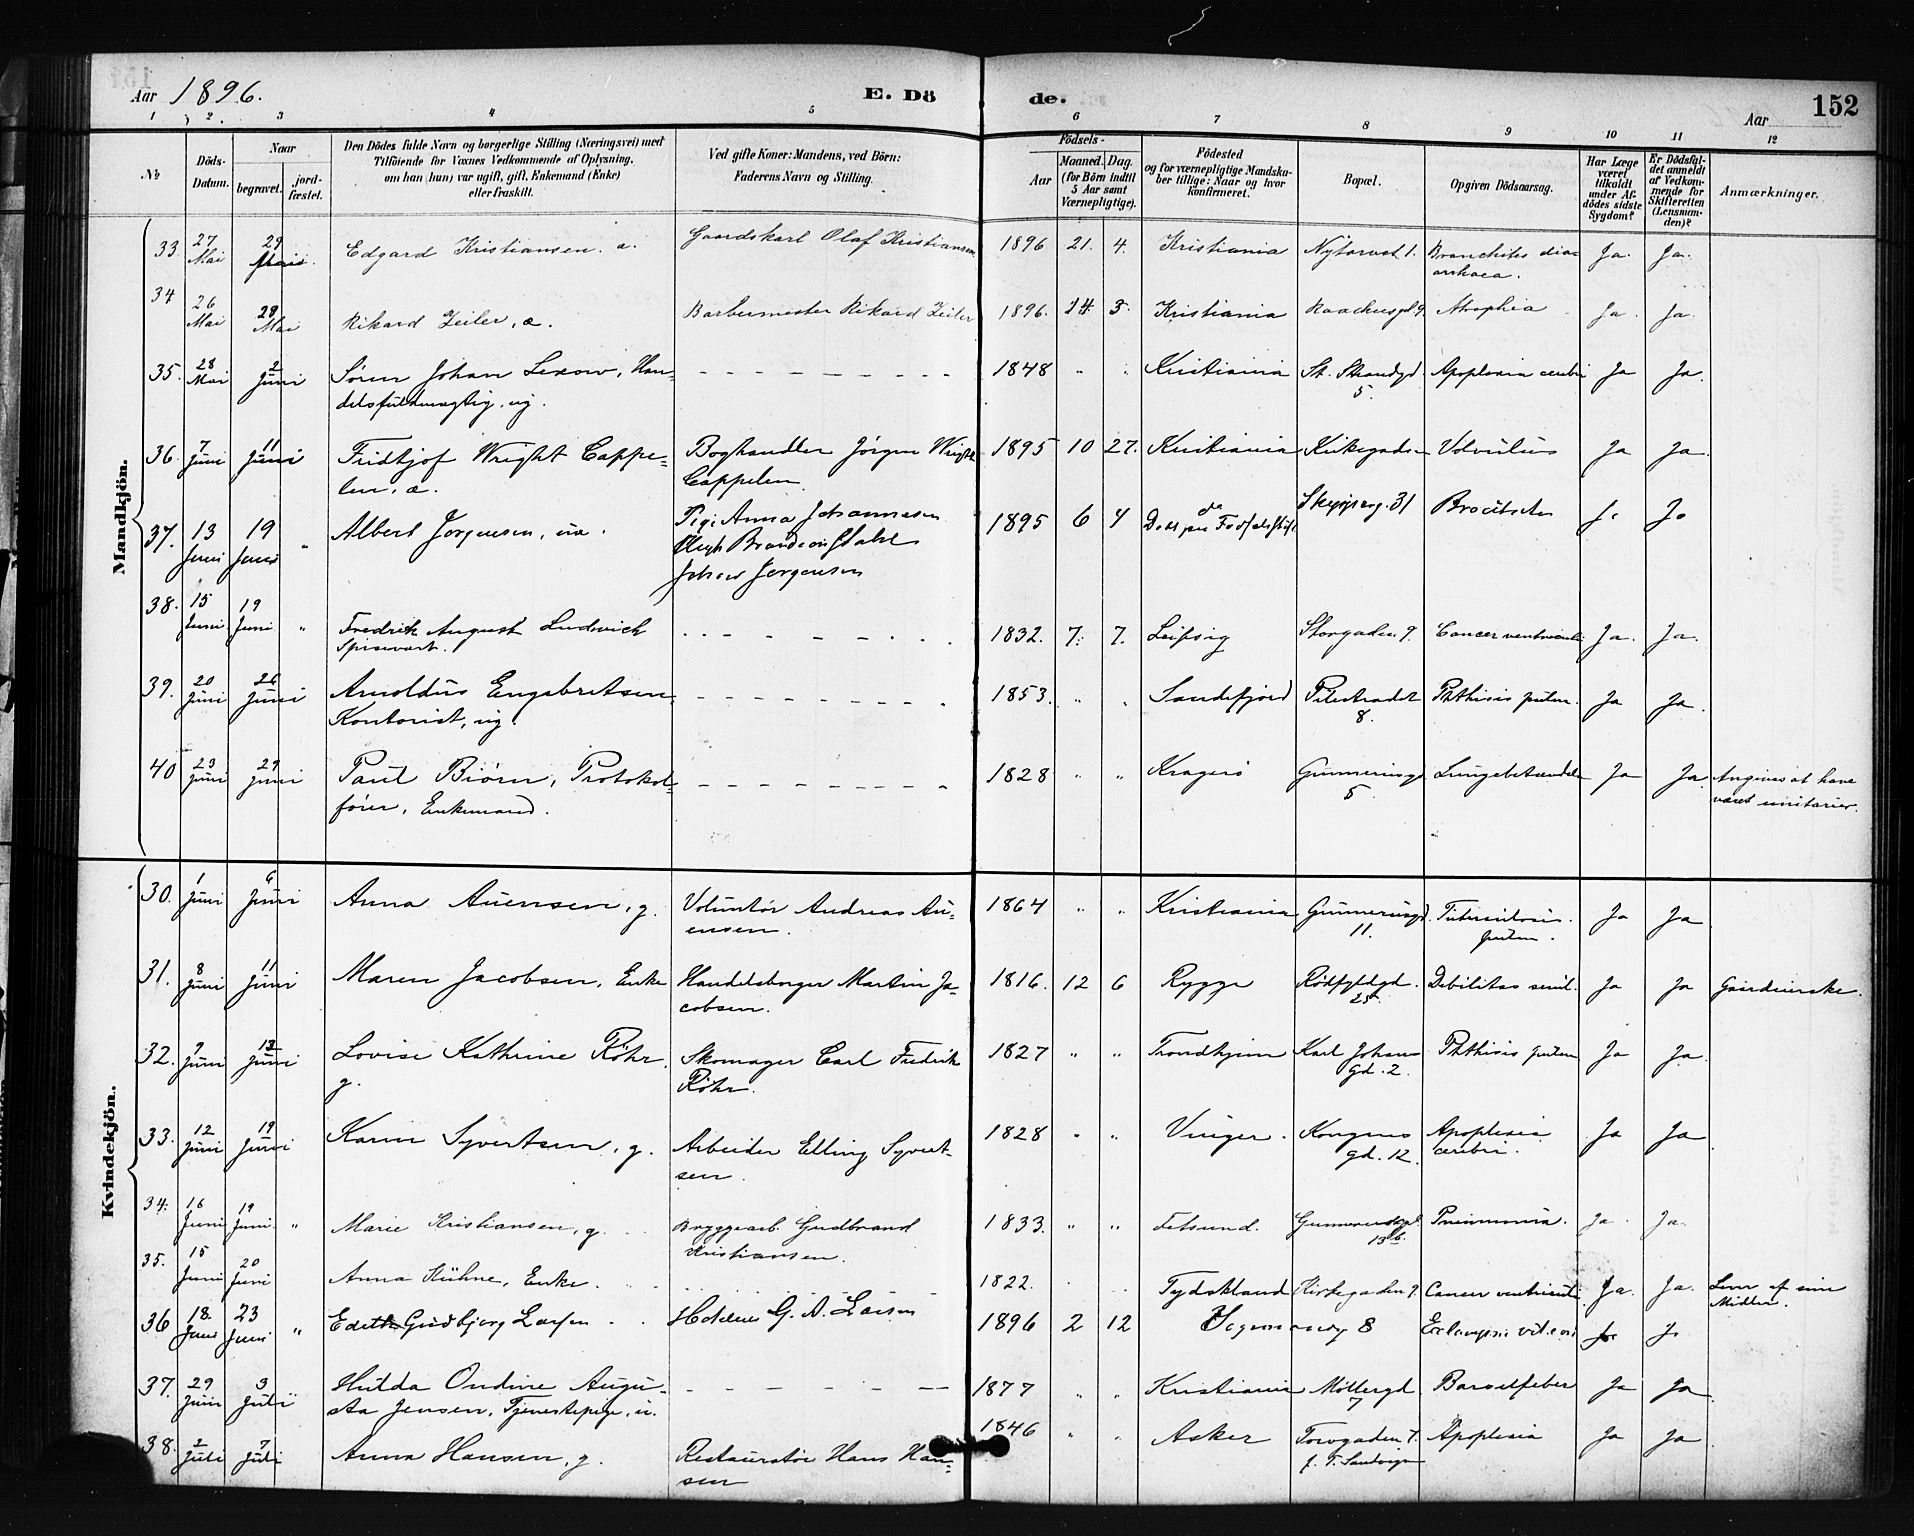 Aar 1896. E. Dö de. Aar 152
1 2. 3 4 5 6 7 8 9 10 11 12
No Döds-Datum. Naar begravet. jord-fæstet.
Den Dödes fulde Navn og borgerlige Stilling (Næringsvei) med
Tilföiende for Voxnes Vedkommende af Oplysning.
om han (hun) var ugift, gift, Enkemand (Enke)
eller fraskilt.
Ved gifte Koner: Mandens, ved Börn:
Faderens Navn og Stilling.
Födsels-
Aar Maaned. Dag.
(for Börn indtil
5 Aar samt
Værnepligtige).
Födested
og for værnepligtige Mandska-
ber tillige: Naar og hvor
konfirmeret.
Bopæl.
Opgiven Dödsaarsag.
Har Læge
været
tilkaldt
under Af-
dödes sidste
Sygdom?
Er Dödsfal-
det anmeldt
af Vedkom-
mende for
Skifteretten
(Lensman-
den)?
Anmærkninger.
Mandkjön.
33. 27 Mai 29 Mai. Edgard Kristiansen. a. Gaardskarl Olaf Kristiansen 1896 21. 4. Kristiania Nytorvet 1. Bronchitis diar-
arrhoea. Ja. Ja.
34 26 Mai 29 Mai Rikard Zeiler, æ. Barbermester Rikard Zeiler 1896. 14. 3. Kristiania Raadhusgd 9. Atrophia Ja. Ja.
35. 28 Mai 2 Juni Søren Johan Lexow, Han-
delsfuldmægtig, ug. 1848 " " Kristiania St. Strandgd
5. Apoplexia cerebri Ja Ja.
36. 7 Juni 11 Juni Fridtjof Wright Cappe-
len, æ. Boghandler Jörgen Wright
Cappelen 1895 10 27. Kristiania Kirkegaden Volvulus Ja Ja
37. 13 Juni 19 Juni " Albert Jørgensen, uæ. Pige Anna Johannesen
Johan Jørgensen 1895 6 4 Skippergd. 31 Ja
38. 15 Juni 19 Juni " Fredrik August Ludwich
Spisevært. 1832. 7. 7. Leipzig Storgaden 9. Cancer ventriculi Ja. Ja.
39. 20 Juni 26 Juni Arnoldus Engebretsen
Kontorist, ug. 1853. " " Sandefjord Pilestrædet
8. Phthisis pulm. Ja Ja.
40 23 Juni 29 Juni Paul Biörn, Protokol-
förer, Enkemand. 1828 " " Kragerö Gunnerusgd
5. Lungebetændelse Ja Ja. Angives at have
været unitarier.
Kvindekjön.
30. 1 Juni 6 Juni Anna Auensen, g. Voluntör Andreas Au-
ensen. 1864 " " Kristiania Gunnerusgd.
11. Tuberculosis
pulm. Ja Ja
31. 8 Juni 11 Juni Maren Jacobsen, Enke Handelsborger Martin Ja-
cobsen. 1816. 12 6 Rygge Rödfyldgd.
25. Debilitas senil. Ja Ja Gaardmerske.
32. 7 Juni 12 Juni Lovise Kathrine Röhr,
g. Skomager Carl Fredrik
Röhr. 1827 " " Trondhjem Karl Johans
gd. 2. Phthisis pulm Ja Ja.
33. 12 Juni 19 Juni Karen Syvertsen, g. Arbeider Elling Syvert-
sen. 1828 " " Vinger. Kongens
gd. 12. Apoplexia
cerebri. Ja Ja
34. 16 Juni 19 Juni " Marie Kristiansen, g. Bryggearb. Gudbrand
Kristiansen. 1833. " " Fetsund. Gunnerusgd.
13b. Pneumonia. Ja. Ja.
35. 15 Juni 20 Juni Anna Kühne, Enke. 1822. Tydskland Kirkegaden 9. Cancer ventriculi Ja. Ja. Lever af sine
Midler.
36 18. Juni 23 Juni " Edith Gudbjørg Larsen Hoteleier G. A. Larsen 1896 2 12 8 Ja
37. 29 Juni 3 Juli Hulda Ondine Augu-
sta Jensen, Tjenestepige, u. 1877 " " Kristiania Möllergd
7 Barselfeber Ja Ja.
38. 2 Juli 7 Juli Anna Hansen, g. Restauratör Hans Han-
sen 1846 " " Asker Torvgaden 7.
f. T. Sandvigen Apoplexia Ja Ja